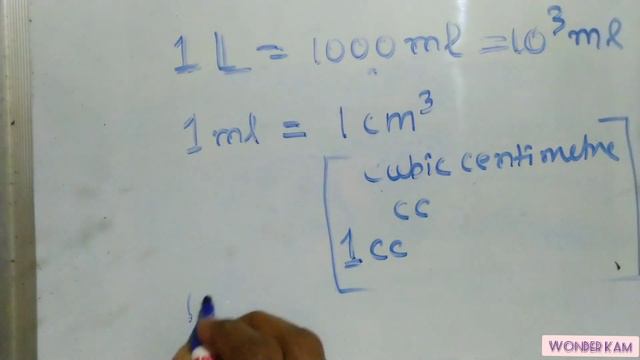 1 L = 1000 ml = 10³ ml
1 ml = 1 cm³
cubic centimetre
cc
1 cc
WONDER KAM